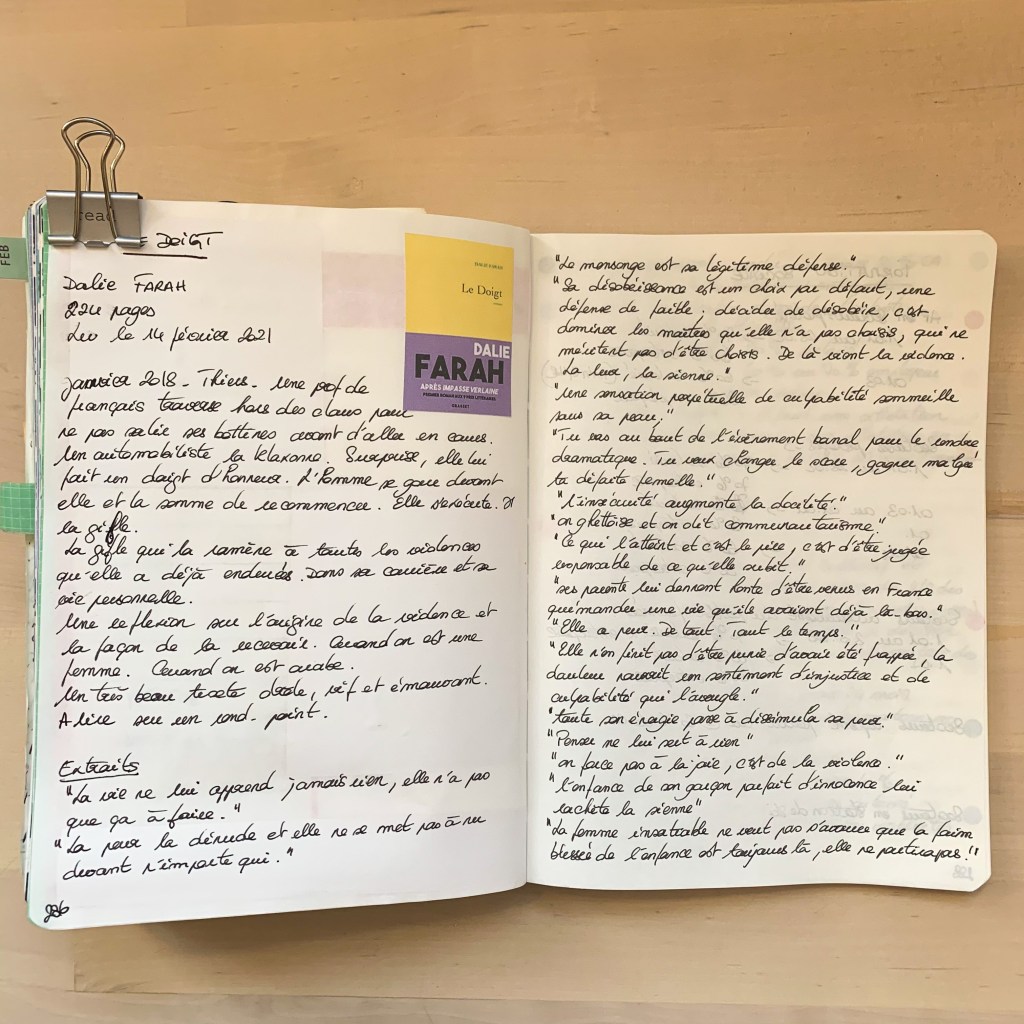 FEB
read
E DOIGT
Dalie FARAH
224 pages
Lu le 14 février 2021
DALIE FARAH
Le Doigt
DALIE
FARAH
APRÈS IMPASSE VERLAINE
PREMIER ROMAN AUX 9 PRIX LITTÉRAIRES
GRASSET
janvier 2018 - Thiers - Une prof de
français traverse hors des clous pour
ne pas salir ses bottines avant d'aller en cours.
Un automobiliste la klaxonne. Surprise, elle lui
fait un doigt d'honneur. L'homme se gare devant
elle et la somme de recommencer. Elle s'exécute. Il
la gifle.
La gifle qui la ramène à toutes les violences
qu'elle a déjà endurées. Dans sa carrière et sa
vie personnelle.
Une réflexion sur l'origine de la violence et
la façon de la recevoir. Quand on est une
femme. Quand on est arabe.
Un très beau texte drole, vif et émouvant.
A lire sur un rond-point.
Extraits
"La vie ne lui apprend jamais rien, elle n'a pas
que ça à faire."
"La peur la dénude et elle ne se met pas à nu
devant n'importe qui."
226
"Le mensonge est sa légitime défense."
"Sa désobéissance est un choix par défaut, une
défense de faible ; décider de désobéir, c'est
dominer les maîtres qu'elle n'a pas choisis, qui ne
méritent pas d'être choisis. De là vient la violence.
La leur, la sienne."
"Une sensation perpétuelle de culpabilité sommeille
sous sa peau."
"Tu vas au bout de l'évènement banal pour le rendre
dramatique. Tu veux changer le score, gagner malgré
ta défaite femelle."
"L'insécurité augmente la docilité."
"On ghettoïse et on dit communautarisme."
"Ce qui l'atteint et c'est le pire, c'est d'être jugée
responsable de ce qu'elle subit."
"ses parents lui donnent honte d'être venus en France
quémander une vie qu'ils avaient déjà là-bas."
"Elle a peur. De tout. Tout le temps."
"Elle n'en finit pas d'être punie d'avoir été frappée, la
douleur nourrit un sentiment d'injustice et de
culpabilité qui l'aveugle."
"toute son énergie passe à dissimuler sa peur."
"Penser ne lui sert à rien"
"on force pas à la joie, c'est de la violence."
"l'enfance de son garçon parfait d'innocence lui
rachète la sienne"
"La femme insatiable ne veut pas s'avouer que la faim
blessée de l'enfance est toujours là, elle ne partira pas."